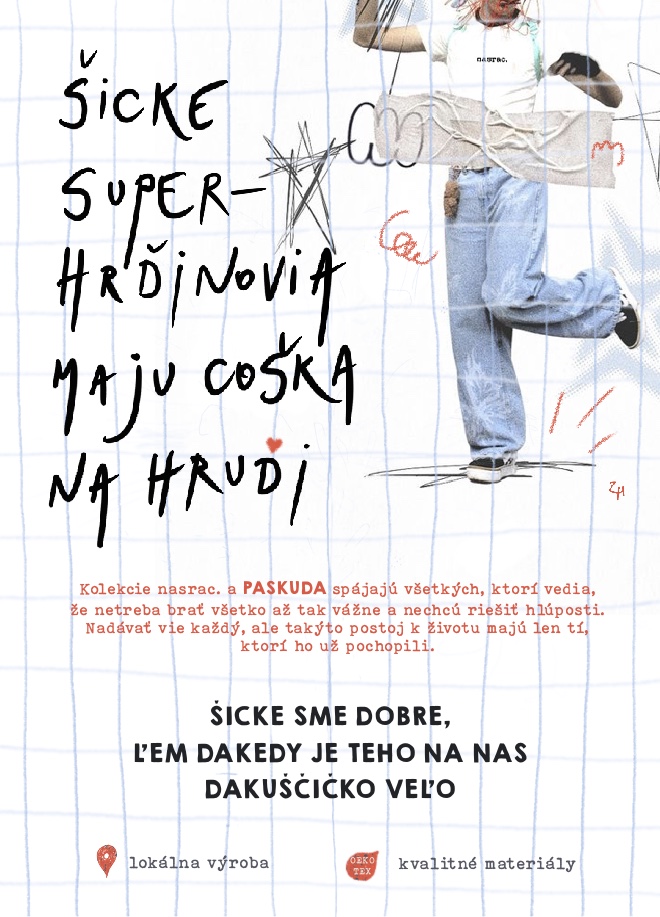 nasrac.
ŠiCKE
SUPER-
HRĎiNOViA
MAJU COŠKA
NA HRUDi
Kolekcie nasrac. a PASKUDA spájajú všetkých, ktorí vedia,
že netreba brať všetko až tak vážne a nechcú riešiť hlúposti.
Nadávať vie každý, ale takýto postoj k životu majú len tí,
ktorí ho už pochopili.
ŠICKE SME DOBRE,
ĽEM DAKEDY JE TEHO NA NAS
DAKUŠČIČKO VEĽO
lokálna výroba
OEKO
TEX
kvalitné materiály